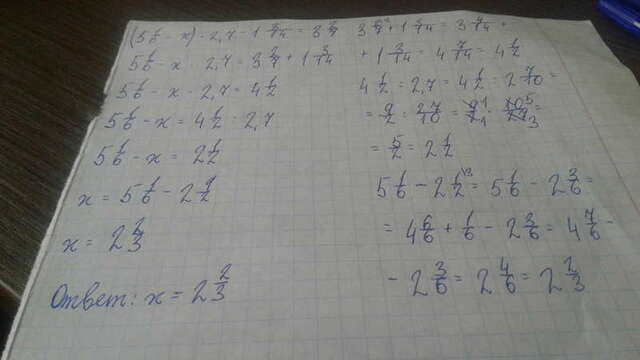 (5 1/6 - x) · 2,7 - 1 3/14 = 3 2/7
5 1/6 - x · 2,7 = 3 2/7 + 1 3/14
5 1/6 - x · 2,7 = 4 1/2
5 1/6 - x = 4 1/2 : 2,7
5 1/6 - x = 2 1/2
x = 5 1/6 - 2 1/2
x = 2 2/3
Ответ: x = 2 2/3
3 2/7 + 1 3/14 = 3 4/14 +
+ 1 3/14 = 4 7/14 = 4 1/2
4 1/2 : 2,7 = 4 1/2 : 2 7/10 =
= 9/2 : 27/10 = 9/2 · 10/27 =
= 5/2 = 2 1/2
5 1/6 - 2 1/2 = 5 1/6 - 2 3/6 =
= 4 6/6 + 1/6 - 2 3/6 = 4 7/6 -
- 2 3/6 = 2 4/6 = 2 2/3